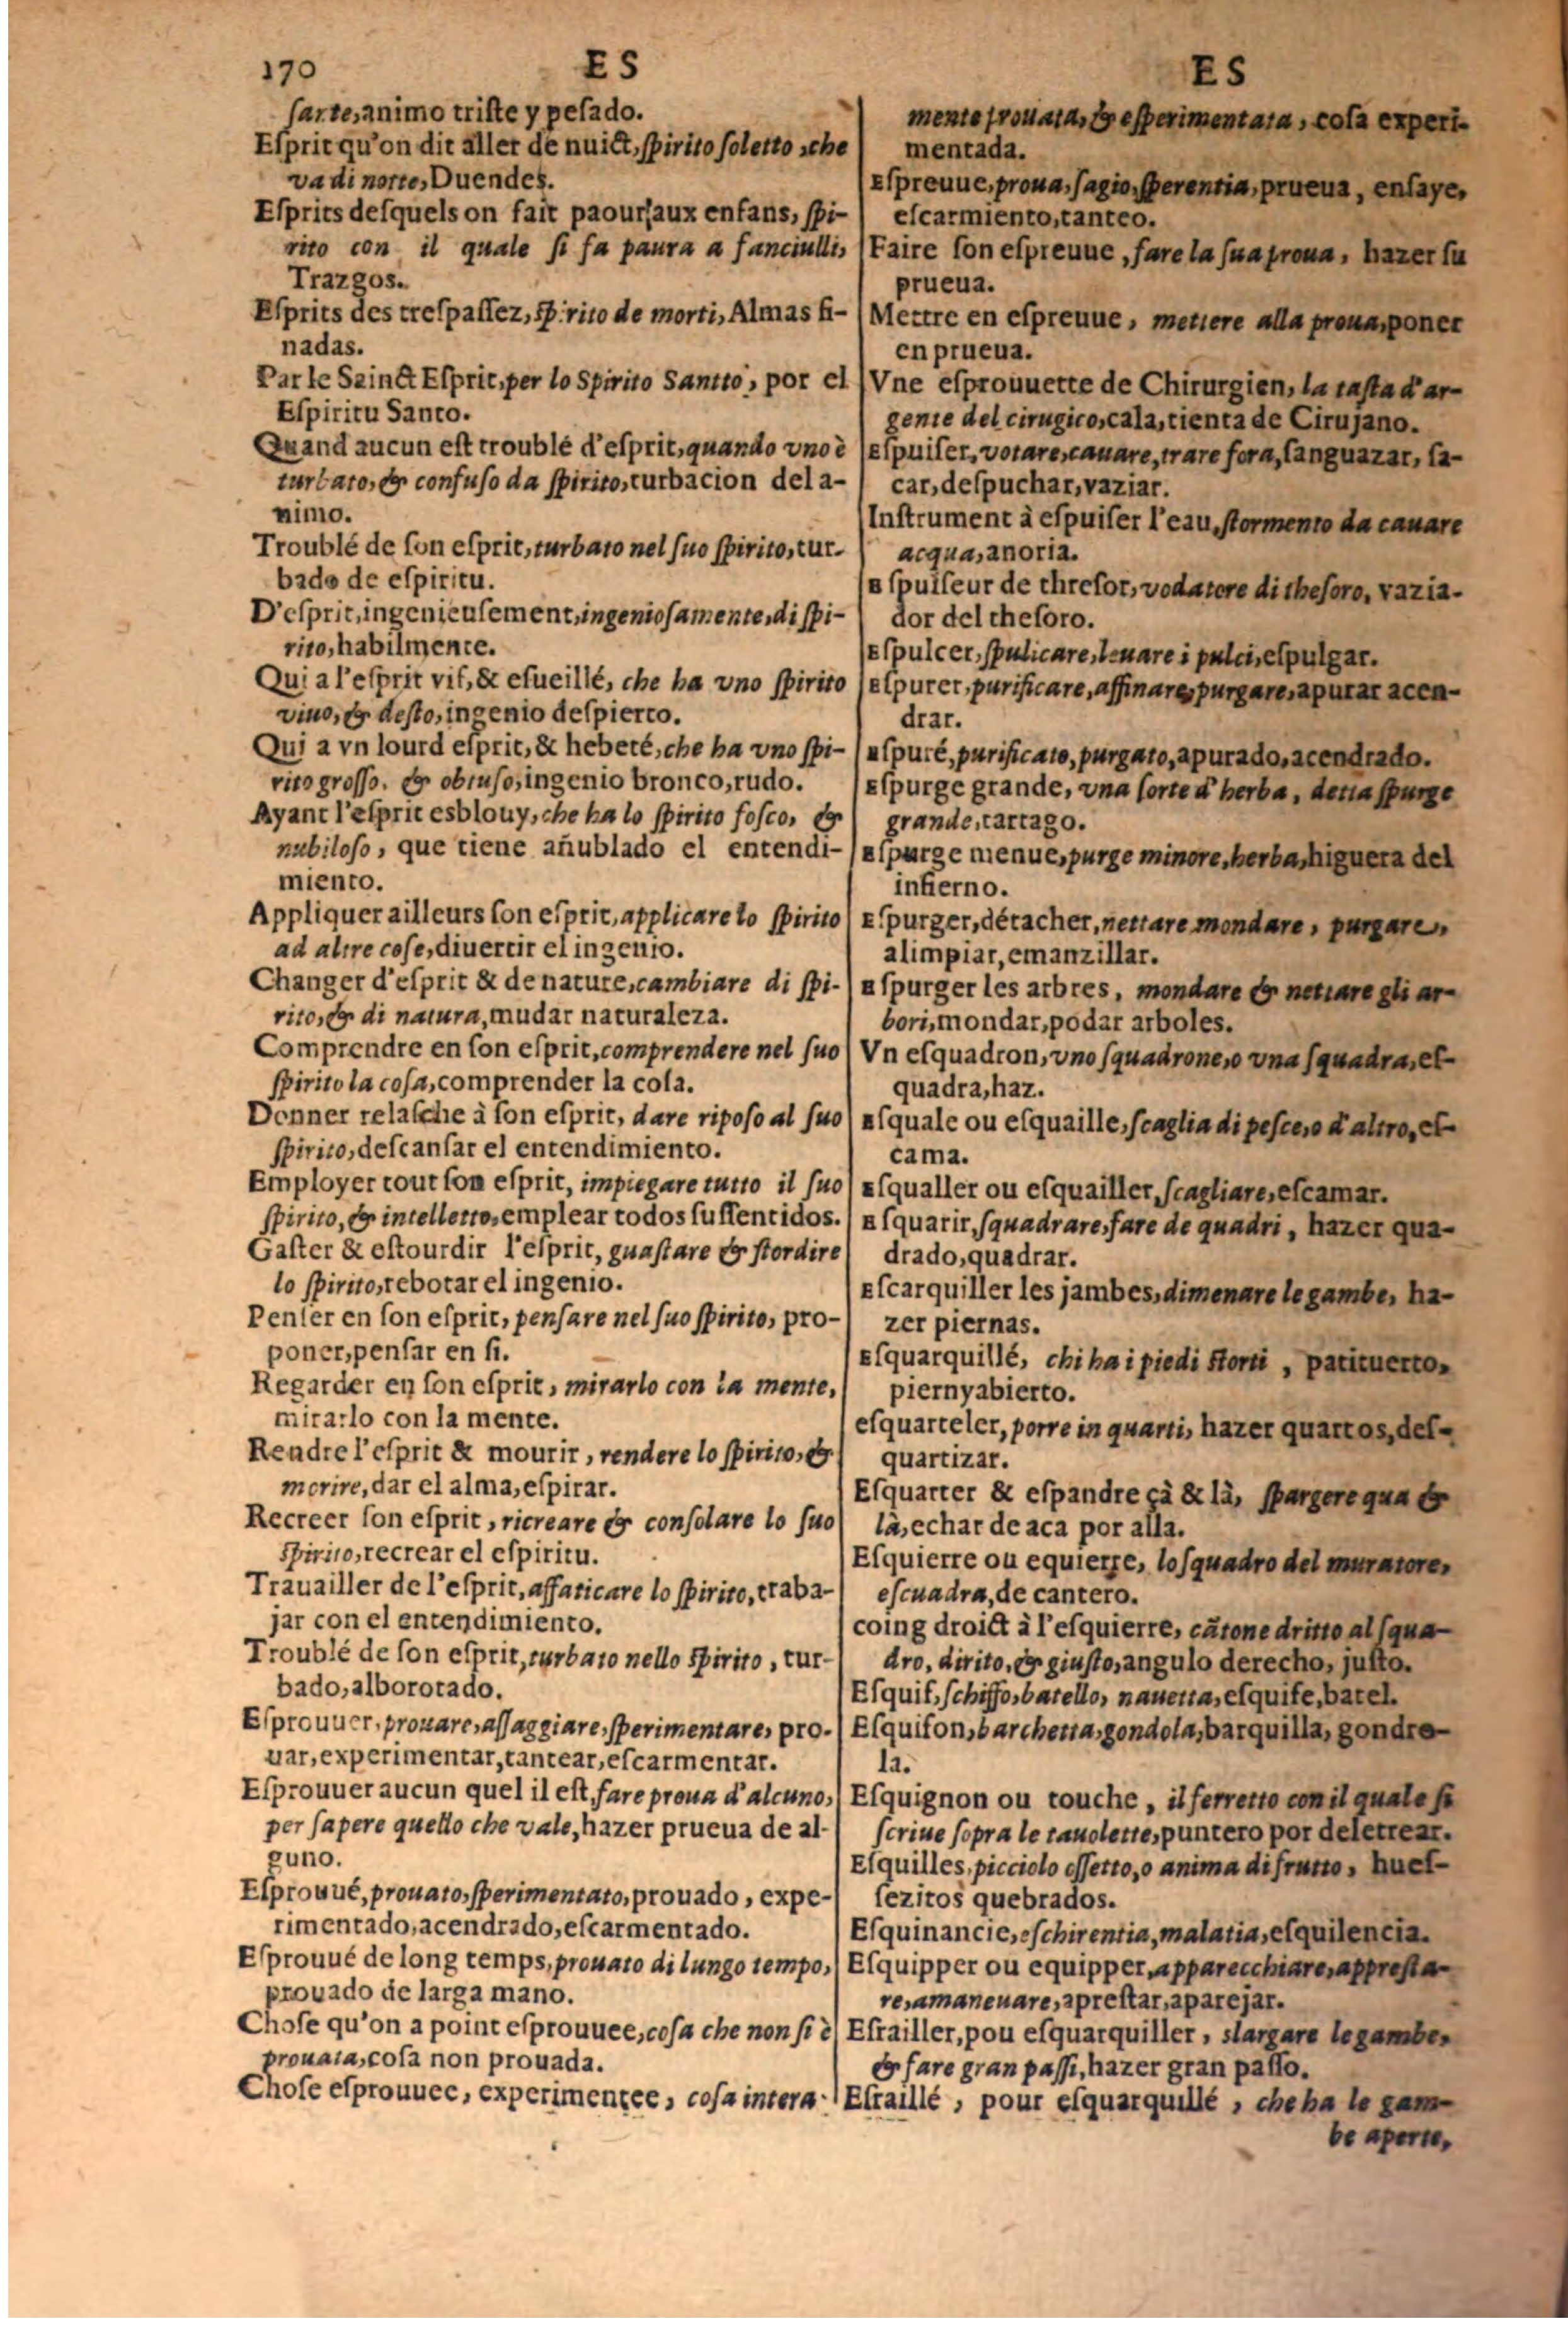 170
ES
ES
ſarte, animo triſte y peſado.
Eſprit qu'on dit aller de nuict, ſpirito ſoletto, che
va di notte, Duendes.
Eſprits deſquels on fait paour aux enfans, ſpi-
rito con il quale ſi fa paura a fanciulli,
Trazgos.
Eſprits des treſpaſſez, ſpirito de morti, Almas fi-
nadas.
Par le Sainct Eſprit, per lo Spirito Santto, por el
Eſpiritu Santo.
Quand aucun eſt troublé d'eſprit, quando vno è
turbato, & confuſo da ſpirito, turbacion del a-
nimo.
Troublé de ſon eſprit, turbato nel ſuo ſpirito, tur-
bado de eſpiritu.
D'eſprit, ingenieuſement, ingenioſamente, di ſpi-
rito, habilmente.
Qui a l'eſprit vif, & eſueillé, che ha vno ſpirito
viuo, & deſto, ingenio deſpierto.
Qui a vn lourd eſprit, & hebeté, che ha vno ſpi-
rito groſſo, & obtuſo, ingenio bronco, rudo.
Ayant l'eſprit esblouy, che ha lo ſpirito foſco, &
nubiloſo, que tiene añublado el entendi-
miento.
Appliquer ailleurs ſon eſprit, applicare lo ſpirito
ad altre coſe, diuertir el ingenio.
Changer d'eſprit & de nature, cambiare di ſpi-
rito, & di natura, mudar naturaleza.
Comprendre en ſon eſprit, comprendere nel ſuo
ſpirito la coſa, comprender la coſa.
Donner relaſche à ſon eſprit, dare ripoſo al ſuo
ſpirito, deſcanſar el entendimiento.
Employer tout ſon eſprit, impiegare tutto il ſuo
ſpirito, & intelletto, emplear todos ſuſſentidos.
Gaſter & eſtourdir l'eſprit, guaſtare & ſtordire
lo ſpirito, rebotar el ingenio.
Penſer en ſon eſprit, penſare nel ſuo ſpirito, pro-
poner, penſar en ſi.
Regarder en ſon eſprit, mirarlo con la mente,
mirarlo con la mente.
Rendre l'eſprit & mourir, rendere lo ſpirito, &
morire, dar el alma, eſpirar.
Recreer ſon eſprit, ricreare & conſolare lo ſuo
ſpirito, recrear el eſpiritu.
Trauailler de l'eſprit, affaticare lo ſpirito, traba-
jar con el entendimiento.
Troublé de ſon eſprit, turbato nello ſpirito, tur-
bado, alborotado.
Eſprouuer, prouare, aſſaggiare, ſperimentare, pro-
uar, experimentar, tantear, eſcarmentar.
Eſprouuer aucun quel il eſt, fare proua d'alcuno,
per ſapere quello che vale, hazer prueua de al-
guno.
Eſprouué, prouato, ſperimentato, prouado, expe-
rimentado, acendrado, eſcarmentado.
Eſprouué de long temps, prouato di lungo tempo,
prouado de larga mano.
Choſe qu'on a point eſprouuee, coſa che non ſi è
prouata, coſa non prouada.
Choſe eſprouuee, experimentee, coſa intera-
mente prouata, & eſperimentata, coſa experi-
mentada.
Eſpreuue, proua, ſagio, ſperentia, prueua, enſaye,
eſcarmiento, tanteo.
Faire ſon eſpreuue, fare la ſua proua, hazer ſu
prueua.
Mettre en eſpreuue, mettere alla proua, poner
en prueua.
Vne eſprouuette de Chirurgien, la taſta d'ar-
gente del cirugico, cala, tienta de Cirujano.
Eſpuiſer, votare, cauare, trare fora, ſanguazar, ſa-
car, deſpuchar, vaziar.
Inſtrument à eſpuiſer l'eau, ſtormento da cauare
acqua, anoria.
Eſpuiſeur de threſor, vodatore di theſoro, vazia-
dor del theſoro.
Eſpulcer, ſpulicare, leuare i pulci, eſpulgar.
Eſpurer, purificare, affinare, purgare, apurar acen-
drar.
Eſpuré, purificato, purgato, apurado, acendrado.
Eſpurge grande, vna ſorte d'herba, detta ſpurge
grande, tartago.
Eſpurge menue, purge minore, herba, higuera del
infierno.
Eſpurger, détacher, nettare mondare, purgare,
alimpiar, emanzillar.
Eſpurger les arbres, mondare & nettare gli ar-
bori, mondar, podar arboles.
Vn eſquadron, vno ſquadrone, o vna ſquadra, eſ-
quadra, haz.
Eſquale ou eſquaille, ſcaglia di peſce, o d'altro, eſ-
cama.
Eſqualler ou eſquailler, ſcagliare, eſcamar.
Eſquarir, ſquadrare, fare de quadri, hazer qua-
drado, quadrar.
Eſcarquiller les jambes, dimenare le gambe, ha-
zer piernas.
Eſquarquillé, chi ha i piedi ſtorti, patituerto,
piernyabierto.
eſquarteler, porre in quarti, hazer quartos, deſ-
quartizar.
Eſquarter & eſpandre çà & là, ſpargere qua &
là, echar de aca por alla.
Eſquierre ou equierre, lo ſquadro del muratore,
eſcuadra, de cantero.
coing droict à l'eſquierre, cãtone dritto al ſqua-
dro, dirito, & giuſto, angulo derecho, juſto.
Eſquif, ſchiffo, batello, nauetta, eſquife, batel.
Eſquifon, barchetta, gondola, barquilla, gondro-
la.
Eſquignon ou touche, il ferretto con il quale ſi
ſcriue ſopra le tauolette, puntero por deletrear.
Eſquilles, picciolo oſſetto, o anima di frutto, hueſ-
ſezitos quebrados.
Eſquinancie, eſchirentia, malatia, eſquilencia.
Eſquipper ou equipper, apparecchiare, appreſta-
re, amaneuare, apreſtar, aparejar.
Eſrailler, pou eſquarquiller, slargare le gambe,
& fare gran paſſi, hazer gran paſſo.
Eſraillé, pour eſquarquillé, che ha le gam-
be aperte,